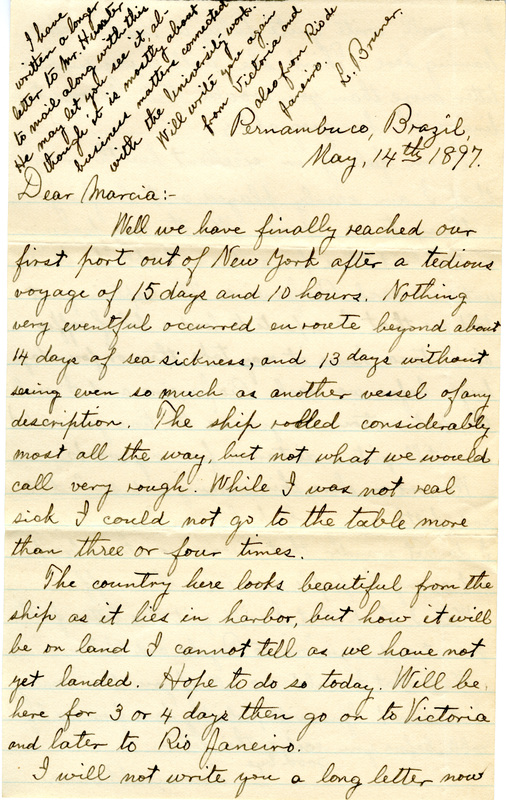 I have
written a long
letter to Mr. Hunter
to mail along with this
He may let you see it, al-
though it is mostly about
business matters connected
with the University work.
Will write you again
from Victoria and
also from Rio de
Janeiro.
L. Bruner.
Pernambuco, Brazil,
May, 14th 1897.
Dear Marcia:-
Well we have finally reached our
first port out of New York after a tedious
voyage of 15 days and 10 hours. Nothing
very eventful occurred en route beyond about
14 days of sea sickness, and 13 days without
seeing even so much as another vessel of any
description. The ship rolled considerably
most all the way, but not what we would
call very rough. While I was not real
sick I could not go to the table more
than three or four times.
The country here looks beautiful from the
ship as it lies in harbor, but how it will
be on land I cannot tell as we have not
yet landed. Hope to do so today. Will be
here for 3 or 4 days then go on to Victoria
and later to Rio Janeiro.
I will not write you a long letter now